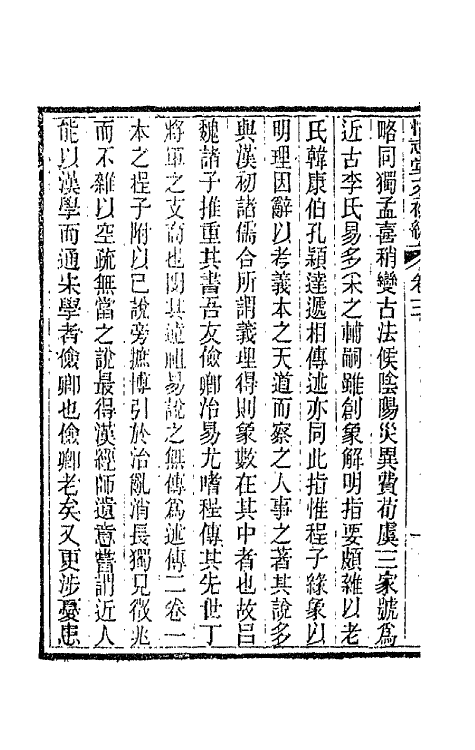 略同獨孟喜稍變古法候陰陽災異費荀虞三家號爲
近古李氏易多采之輔嗣雖創象解明指要頗雜以老
氏韓康伯孔穎達遞相傳述亦同此指惟程子緣象以
明理因辭以考義本之天道而察之人事之著其說多
與漢初諸儒合所謂義理得則象數在其中者也故呂
魏諸子推重其書吾友儉卿治易尤嗜程傳其先世丁
將軍之支裔也閔其遠祖易說之無傳爲述傳二卷一
本之程子附以己說旁摭博引於治亂消長獨見徵兆
而不雜以空疏無當之說最得漢經師遺意嘗謂近人
能以漢學而通朱學者儉卿也儉卿老矣又更涉憂患